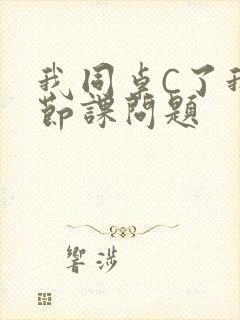 我同卓C了我
節課問題
響涉